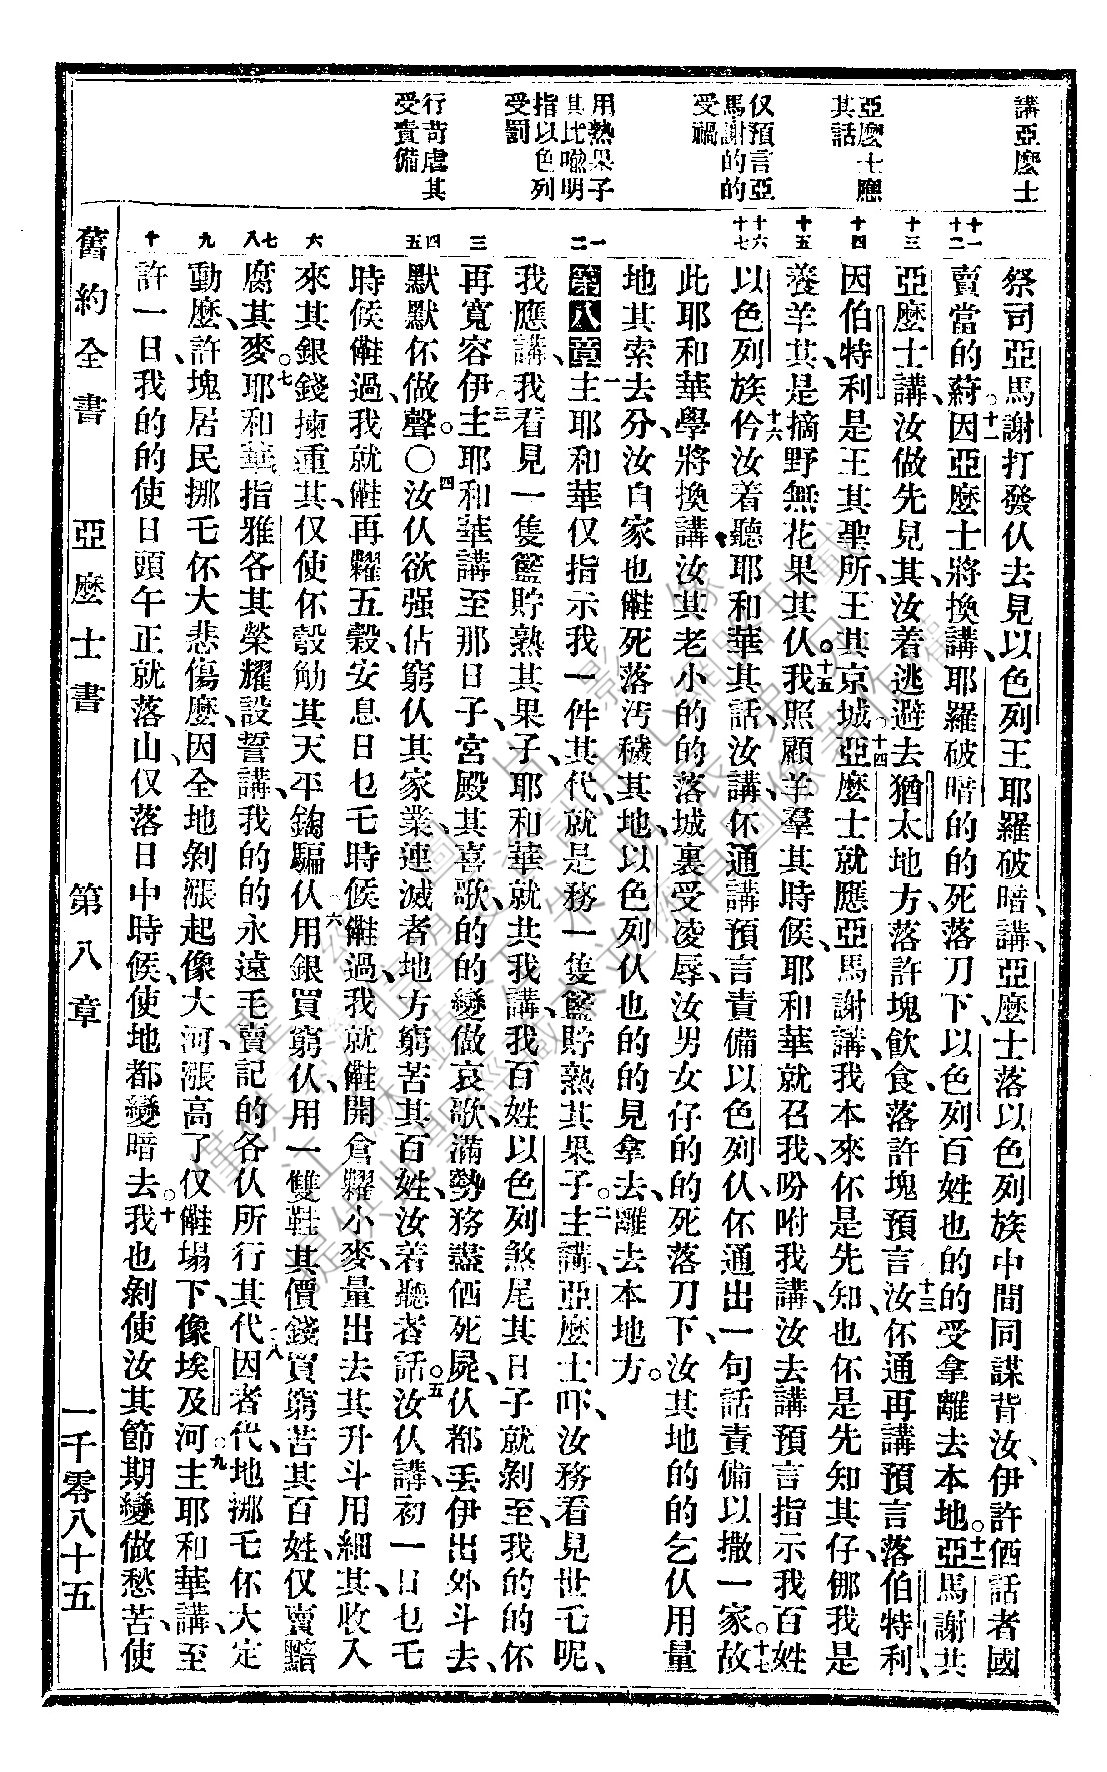 講亞麼士
亞麼士應
其話
仅預言亞
馬謝的的
受禍
用熟果子
其比喩明
指以色列
受罰
行苛虐其
受責備
十一
十二
十三
十四
十五
十六
十七
一
二
三
四
五
六
七
八
九
十
祭司亞馬謝打發仈去見以色列王耶羅破暗講、亞麼士落以色列族中間同謀背汝、伊許價話者國
賣當的䈊。十一因亞麼士將換講、耶羅破暗的的死落刀下、以色列百姓也的的受拿離去本地。十二亞馬謝共
亞麼士講、汝做先見其、汝着逃避去猶太地方、落許塊飲食、落許塊預言。十三汝伓通再講預言落伯特利、
因伯特利是王其聖所、王其京城。十四亞麼士就應亞馬謝講、我本來伓是先知、也伓是先知其仔、㑚我是
養羊其、是摘野無花果其仈。十五我照顧羊羣其時候、耶和華就召我、吩咐我講、汝去講預言指示我百姓
以色列族。十六仱汝着聽耶和華其話、汝講伓通講預言責備以色列仈、伓通出一句話責備以撒一家。十七故
此耶和華學將換講、汝其老小的的落城裏受凌辱、汝男女仔的的死落刀下、汝其地的的乞仈用量
地其索去分、汝自家也𣍐死落汚穢其地、以色列仈也的的見拿去、離去本地方。
第八章一主耶和華仅指示我一件其代、就是務一隻籃貯熟其果子。二主講、亞麼士吓、汝務看見世乇呢、
我應講、我看見一隻籃貯熟其果子、耶和華就共我講、我百姓以色列煞尾其日子就剝至、我的的伓
再寬容伊。三主耶和華講、至那日子、宮殿其喜歌的的變做哀歌、滿勢務盡価死屍、仈都丟伊出外斗去、
默默伓做聲。○四汝仈欲强佔窮仈其家業、連滅者地方窮苦其百姓、汝着聽者話。五汝仈講、初一日乜乇
時候𣍐過、我就𣍐再糶五穀、安息日乜乇時候𣍐過、我就𣍐開倉糶小麥、量出去其升斗用細其、收入
來其銀錢揀重其、仅使伓彀觔其天平鉤騙仈。六用銀買窮仈、用一雙鞋其價錢買窮苦其百姓、仅賣黯
腐其麥。七耶和華指雅各其榮耀設誓講、我的的永遠毛賣記的各仈所行其代。八因者代、地挪乇伓大定
動麼、許塊居民挪乇伓大悲傷麼、因全地剝漲起像大河、漲高了仅𣍐塌下、像埃及河。九主耶和華講、至
許一日我的的使日頭午正就落山、仅落日中時候、使地都變暗去。十我也剝使汝其節期變做愁苦、使
舊約全書 亞麼士書 第八章 一千零八十五